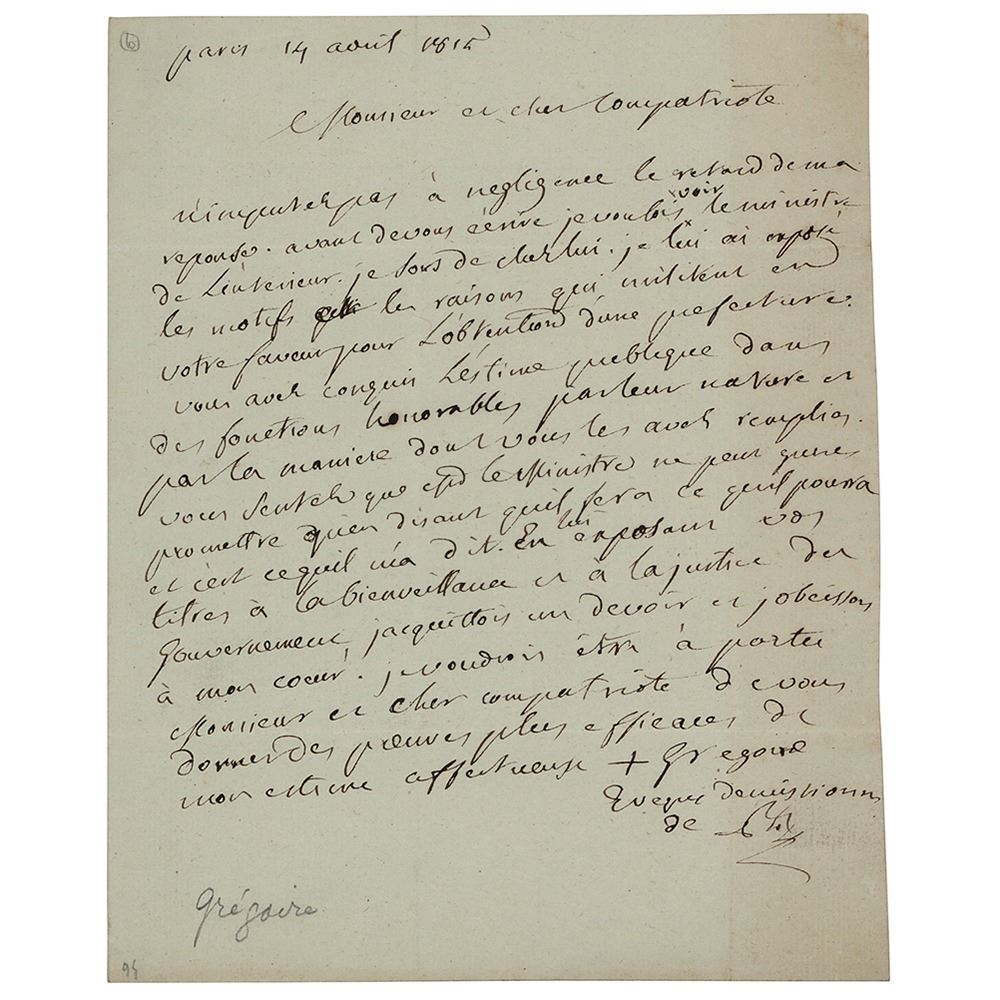 6
paris 14 avril 1815
Monsieur et cher Compatriote
n'imputez pas à negligence le retard de ma
reponse. avant de vous écrire je voulois voir le ministre
de L'interieur. je sors de chez lui. je lui ai exposé
les motifs les raisons qui militent en
votre faveur pour L'obtention d'une prefecture.
vous avez conquis L'éstime publique dans
des fonctions honorables par leur nature et
par la maniere dont vous les avez remplies.
vous sentez que le Ministre ne peut gueres
promettre qu'en disant qu'il fera ce qu'il pourra
et c'est ce qu'il m'a dit. En lui exposant vos
titres à la bienveillance et à la justice du
Gouvernement, j'acquittois un devoir et j'obeissois
à mon coeur. je voudrois être à portée
Monsieur et cher compatriote de vous
donner des preuves plus efficaces de
mon estime affectueuse + Gregoire
Eveque demissionn
de Blois
Grégoire